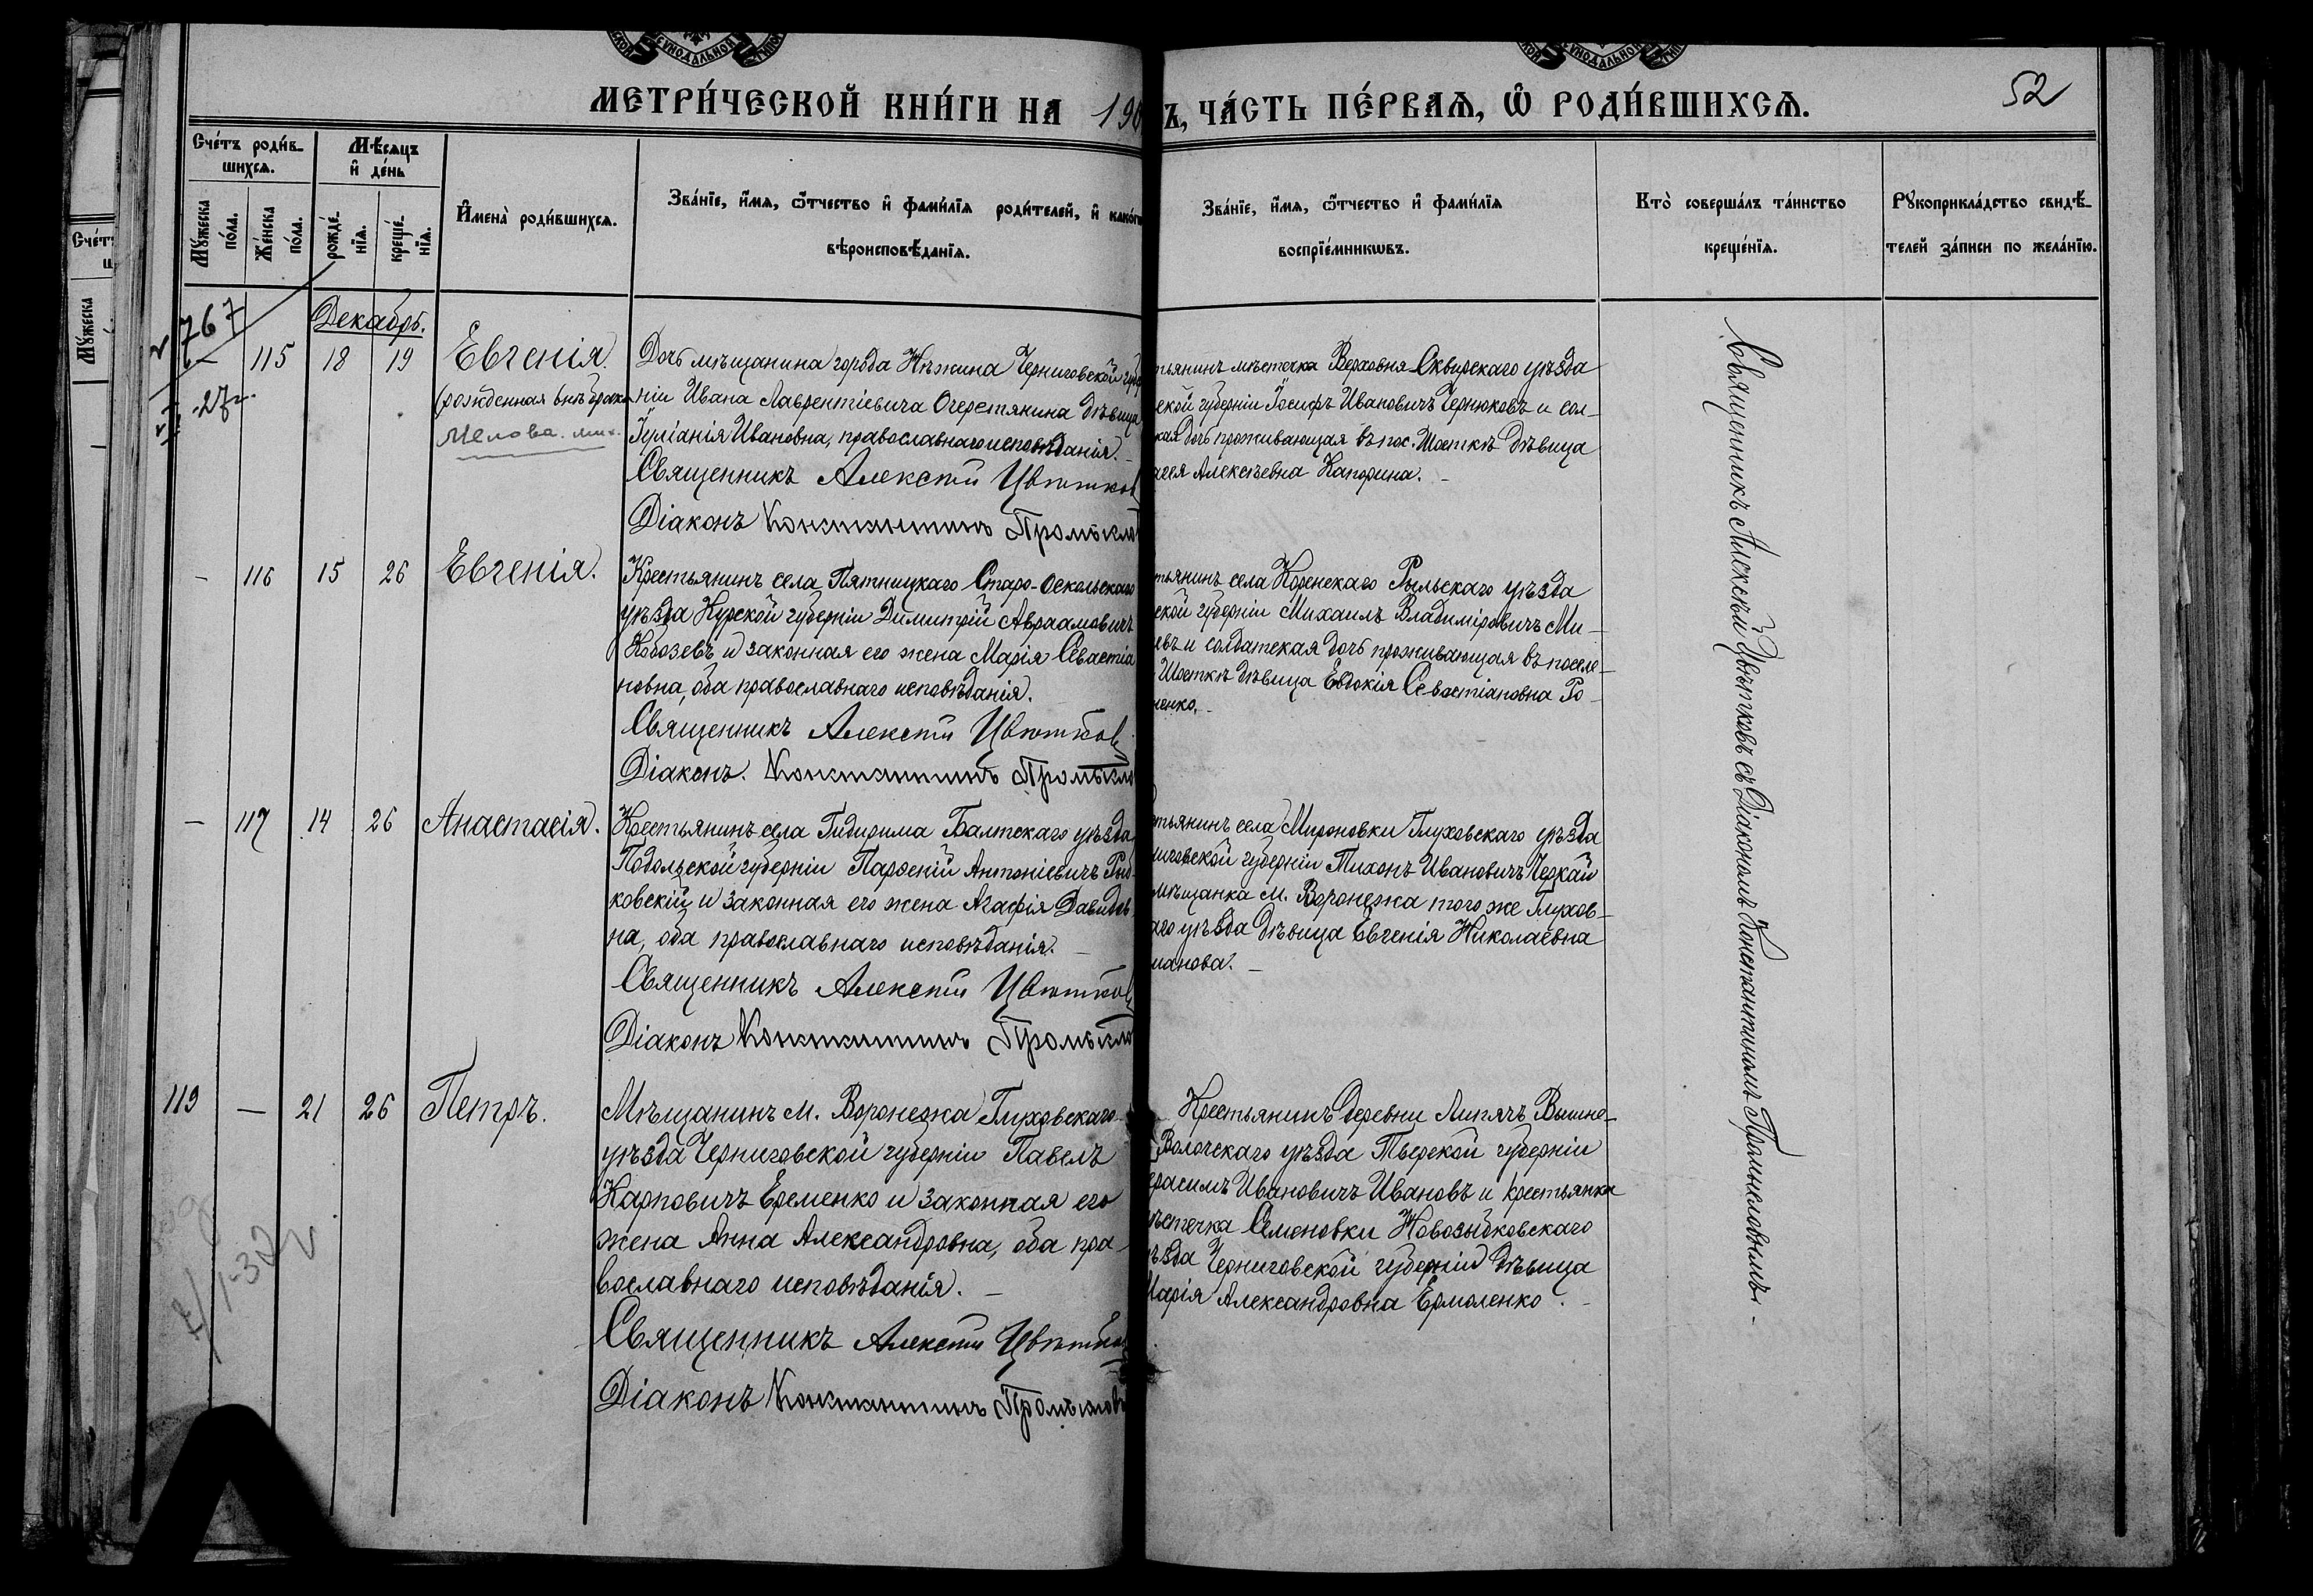 МЕТРИ́ЧЕСКОЙ КНИ́ГИ НА 190
Ъ, ЧА́СТЬ ПЕ́РВАѦ, Ѿ РОДИ́ВШИХСѦ.
52
Сче́тъ роди́в-
шихсѧ.
Мѣ́сѧцъ
и҆ де́нь
Мꙋ́жеска
по́ла.
Же́нска
по́ла.
рожде́-
нїѧ.
креще́-
нїѧ.
И҆мена̀ роди́вшихсѧ.
Зва́нїе, и҆́мѧ, ѻ҆́тчество и҆ фами́лїѧ роди́телей, и҆ како́гѡ
вѣроисповѣ́данїѧ.
Зва́нїе, и҆́мѧ, ѻ҆́тчество и҆ фами́лїѧ
воспрїе́мникѡвъ.
Кто̀ соверша́лъ та́инство
креще́нїѧ.
Рꙋкоприкла́дство свидѣ́-
телей за́писи по жела́нїю.
767
27
Декабрь.
— 115 18 19 Евгенія.
(рожденная внѣ брака
Дочь мѣщанина города Нѣжина Черниговской губер
ніи Ивана Лаврентіевича Очеретянина дѣвица
Іуліанія Ивановна, православнаго исповѣданія. —
Священникъ Алексѣй Цвѣтков
Діаконъ Константинъ Промысло
тьянинъ мѣстечка Верховня Сквирскаго уѣзда
ской губерніи Іосифъ Ивановичъ Чернюковъ и сол-
кая дочь проживающая въ пос. Шосткѣ дѣвица
Алексѣевна Капорина. —
— 116 15 26 Евгенія.
Крестьянинъ села Пятницкаго Старо-Оскольскаго
уѣзда Курской губерніи Димитрій Авраамовичъ
Кобозевъ и законная его жена Марія Севастіа
новна, оба православнаго исповѣданія.
Священникъ Алексѣй Цвѣтков
Діаконъ. Константинъ Промысло
тьянинъ села Коренскаго Рыльскаго уѣзда
ской губерніи Михаилъ Владиміровичъ Ми-
евъ и солдатская дочь проживающая въ поселе-
Шосткѣ дѣвица Евдокія Севостіановна Ро-
ненко. —
— 117 14 26 Анастасія.
Крестьянинъ села Гидирима Балтскаго уѣзда
Подольской губерніи Парѳеній Антоніевичъ Рыб-
ковскій и законная его жена Агафія Давидов-
на, оба православнаго исповѣданія. —
Священникъ Алексѣй Цвѣтков
Діаконъ Константинъ Промысло
тьянинъ села Мироновки Глуховскаго уѣзда
ниговской губерніи Тихонъ Ивановичъ Черкай
мѣщанка м. Воронежа того же Глухов-
аго уѣзда дѣвица Евгенія Николаевна
манова. —
119 — 21 26 Петръ.
Мѣщанинъ м. Воронежа Глуховскаго
уѣзда Черниговской губерніи Павелъ
Карповичъ Еременко и законная его
жена Анна Александровна, оба пра-
вославнаго исповѣданія. —
Священникъ Алексѣй Цвѣтков
Діаконъ Константинъ Промыслов
Крестьянинъ деревни Липячъ Вышне-
Волочскаго уѣзда Тверской губерніи
ерасимъ Ивановичъ Ивановъ и крестьянка
ѣстечка Семеновки Новозыбковскаго
ѣзда Черниговской губерніи дѣвица
Марія Александровна Ермоленко. —
Священникъ Алексѣй Цвѣтковъ съ Діакономъ Константиномъ Промысловымъ. —